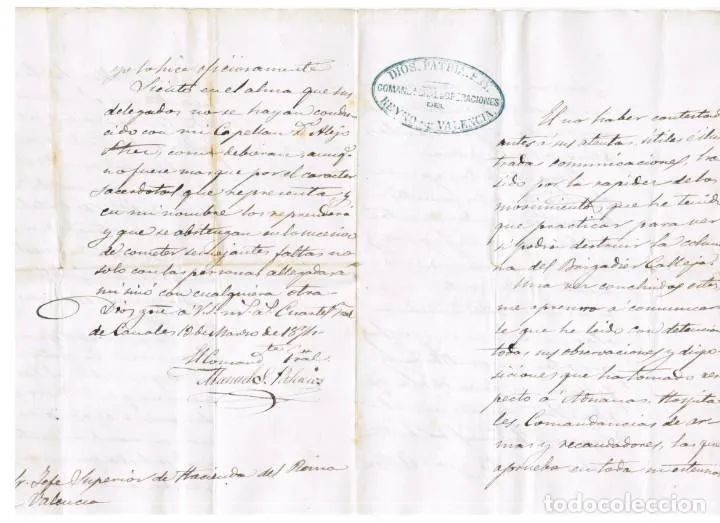 y lo hice oficiosamente
Siento en el alma que sus
delegados no se hayan condu-
cido con mi Capellan D. Alejo
como debieran, aunq.
no fuere mas que por el caracter
sacerdotal que representa y
en mi nombre los reprenderá
y que se abstengan en lo sucesivo
de cometer semejantes faltas no
solo con las personas allegadas a
mi sinó con cualquiera otra
Dios gue a V.S. m.s a.s Cuartel Gral
de Canales 12 de Marzo de 1874
El Comand.te Gral.
Manuel S. Palacios
Sr. Jefe Superior de Hacienda del Reino
Valencia
DIOS, PATRIA, REY
COMANDANCIA OPERACIONES
DEL
REYNO DE VALENCIA
El no haber contestad
antes á sus atentas, útiles é ilus
tradas comunicaciones, ha
sido por la rapidez de los
movimientos que he tenido
que practicar para ver
si podia destruir la colum
na del Brigadier Calleja.
Una vez concluidos estos
me apresuro á comunicar
le que he leido con detencion
todas sus observaciones y dispo
siciones que ha tomado res
pecto á Aduanas, Hospita
les, Comandancias de ar-
mas y recaudadores, las que
apruebo en toda su estension
todocoleccion